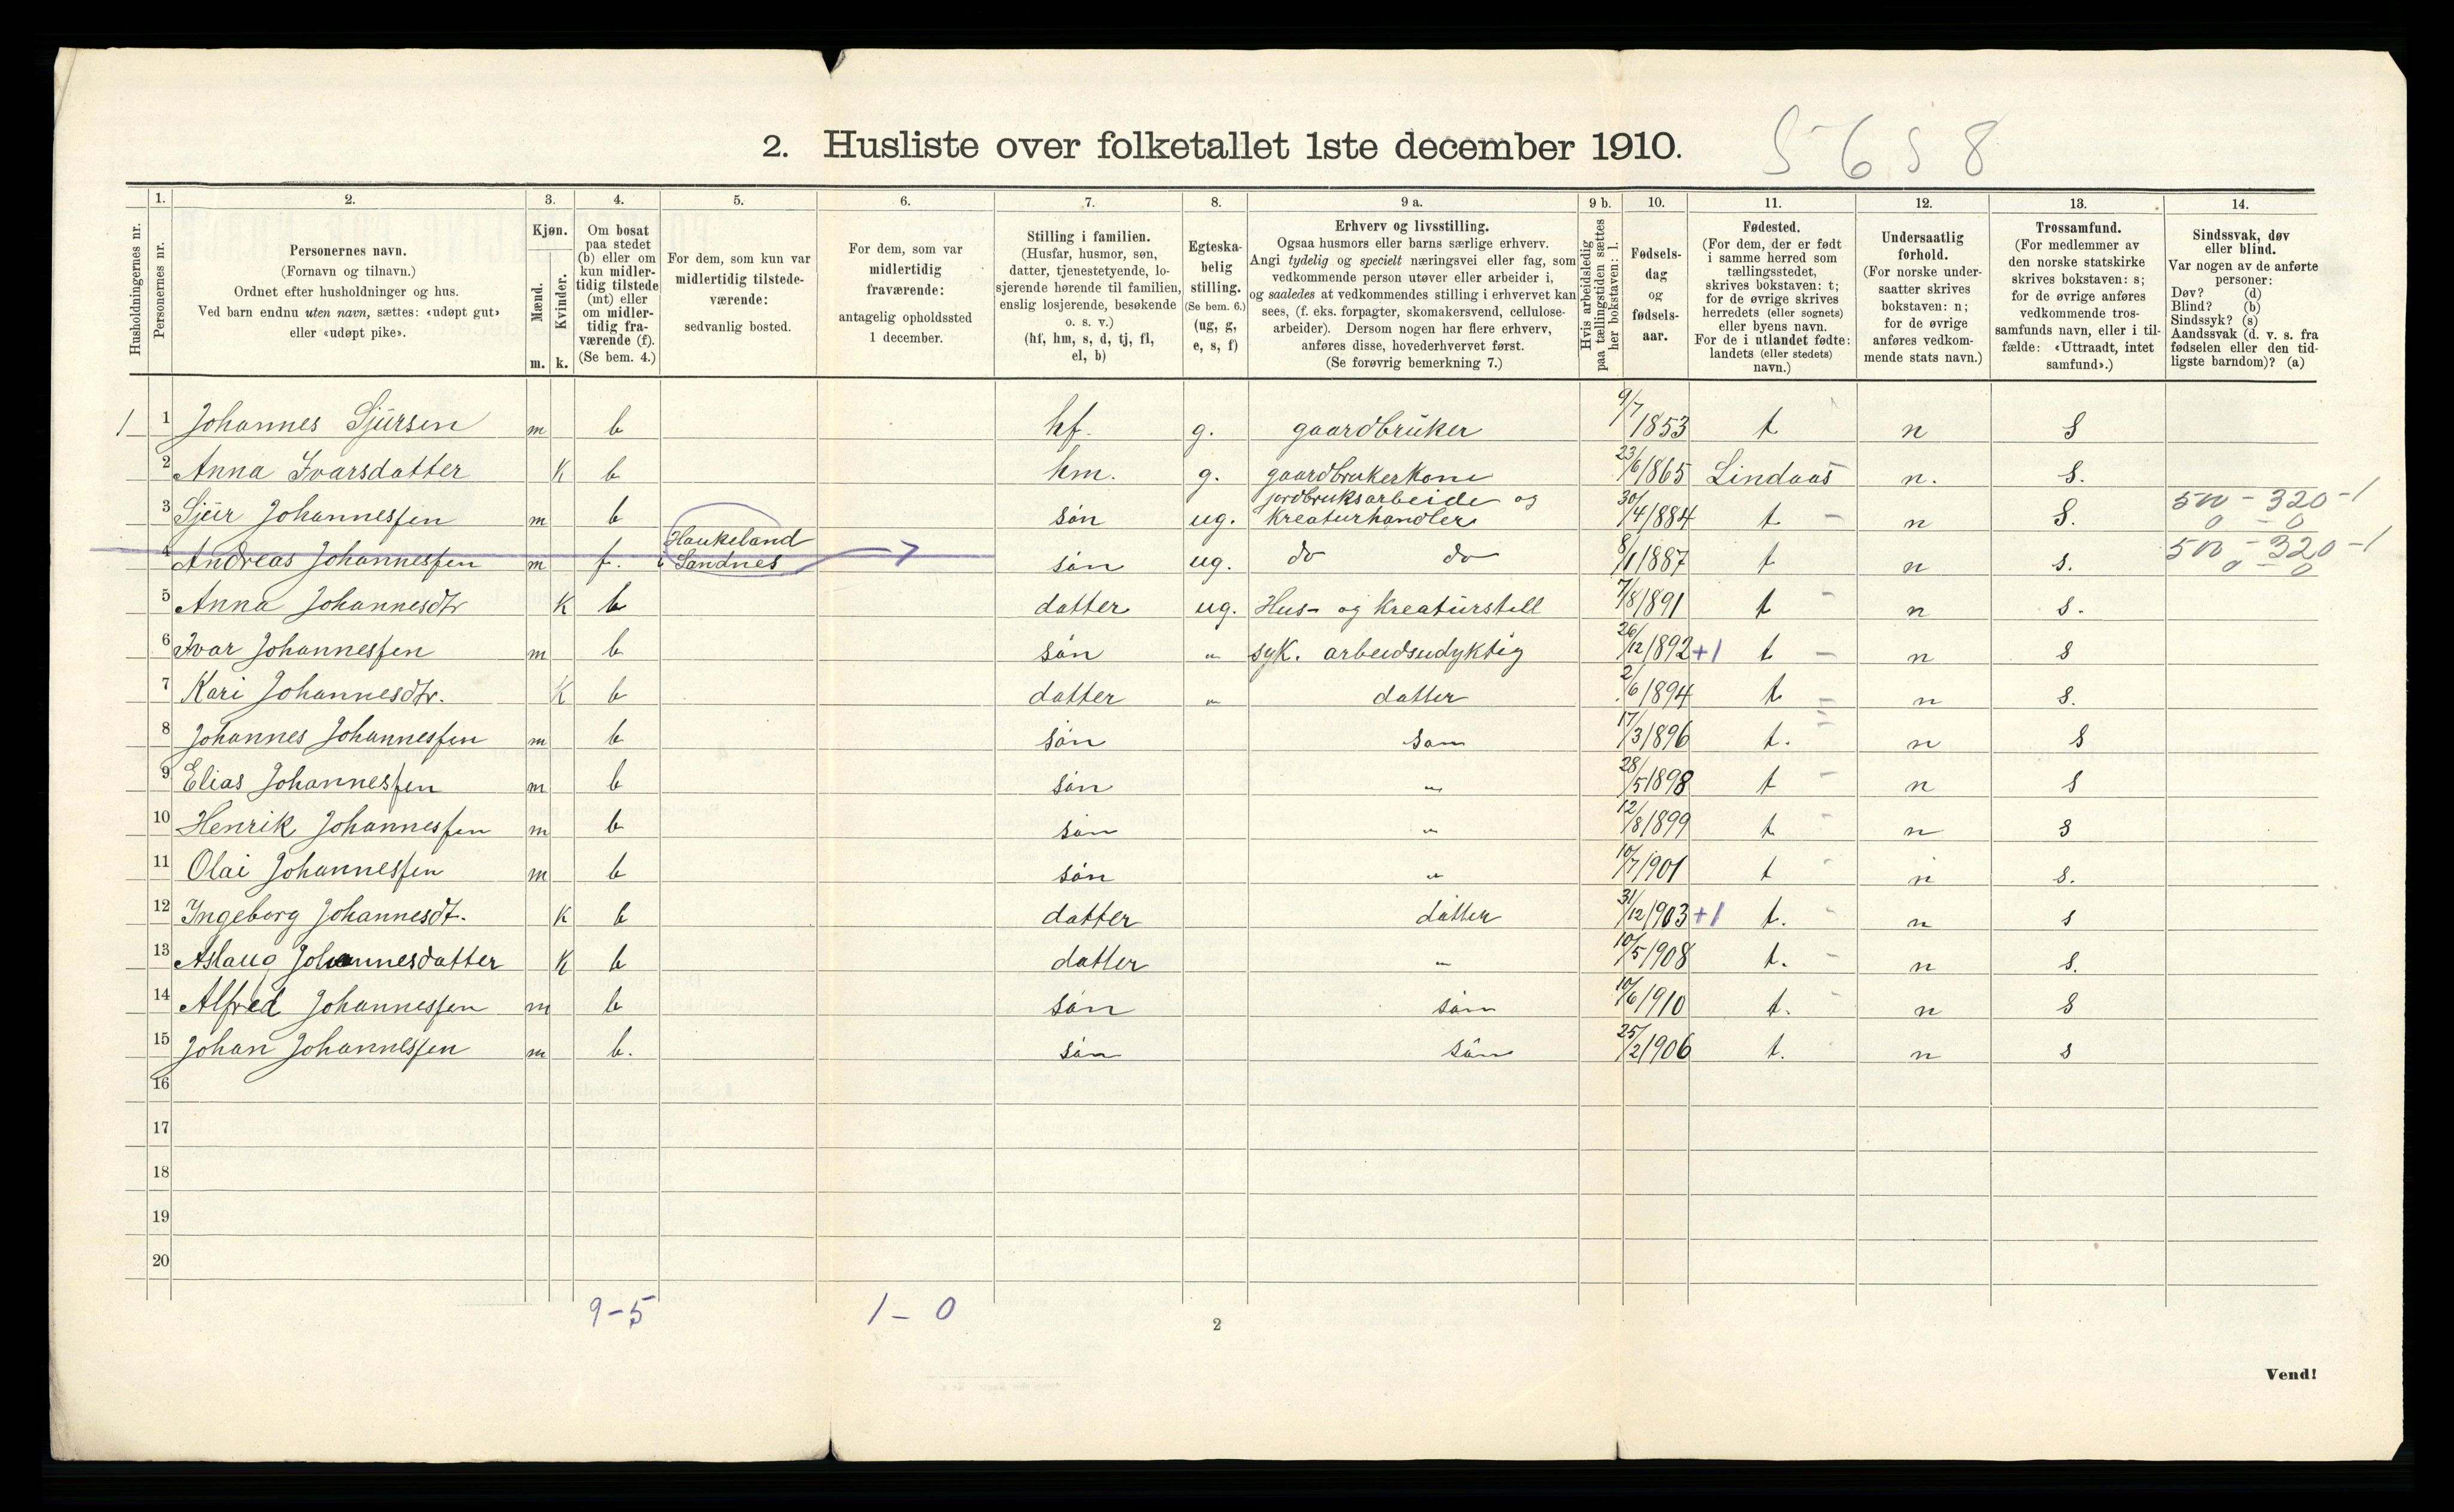 2. Husliste over folketallet 1ste december 1910.
5658
1. 2. 3. 4. 5. 6. 7. 8. 9 a. 9 b. 10. 11. 12. 13. 14.
Husholdningernes nr.
Personernes nr.
Personernes navn.
(Fornavn og tilnavn.)
Ordnet efter husholdninger og hus.
Ved barn endnu uten navn, sættes: «udøpt gut»
eller «udøpt pike».
Kjøn.
Mænd.
Kvinder.
m. k.
Om bosat
paa stedet
(b) eller om
kun midler-
tidig tilstede
(mt) eller
om midler-
tidig fra-
værende (f).
(Se bem. 4.)
For dem, som kun var
midlertidig tilstede-
værende:
sedvanlig bosted.
For dem, som var
midlertidig
fraværende:
antagelig opholdssted
1 december.
Stilling i familien.
(Husfar, husmor, søn,
datter, tjenestetyende, lo-
sjerende hørende til familien,
enslig losjerende, besøkende
o. s. v.)
(hf, hm, s, d, tj, fl,
el, b)
Egteska-
belig
stilling.
(Se bem. 6.)
(ug, g,
e, s, f)
Erhverv og livsstilling.
Ogsaa husmors eller barns særlige erhverv.
Angi tydelig og specielt næringsvei eller fag, som
vedkommende person utøver eller arbeider i,
og saaledes at vedkommendes stilling i erhvervet kan
sees, (f. eks. forpagter, skomakersvend, cellulose-
arbeider). Dersom nogen har flere erhverv,
anføres disse, hovederhvervet først.
(Se forøvrig bemerkning 7.)
Hvis arbeidsledig
paa tællingstiden sættes
her bokstaven: l.
Fødsels-
dag
og
fødsels-
aar.
Fødested.
(For dem, der er født
i samme herred som
tællingsstedet,
skrives bokstaven: t;
for de øvrige skrives
herredets (eller sognets)
eller byens navn.
For de i utlandet fødte:
landets (eller stedets)
navn.)
Undersaatlig
forhold.
(For norske under-
saatter skrives
bokstaven: n;
for de øvrige
anføres vedkom-
mende stats navn.)
Trossamfund.
(For medlemmer av
den norske statskirke
skrives bokstaven: s;
for de øvrige anføres
vedkommende tros-
samfunds navn, eller i til-
fælde: «Uttraadt, intet
samfund».)
Sindssvak, døv
eller blind.
Var nogen av de anførte
personer:
Døv? (d)
Blind? (b)
Sindssyk? (s)
Aandssvak (d. v. s. fra
fødselen eller den tid-
ligste barndom)? (a)
1 1 Johannes Sjursen m b hf. g. gaardbruker 9/7 1853 t n s
2 Anna Ivarsdatter k b hm. g. gaardbrukerkone 23/6 1865 Lindaas n. s.
3 Sjur Johannessen m b søn ug. jordbruksarbeide og kreaturhandler 30/4 1884 t – n s. 500 – 320 – 1
0 – 0
4 Andreas Johannessen m f. Haukeland Sandnes søn ug. do do 8/1 1887 t n s. 500 – 320 – 1
0 – 0
5 Anna Johannesdtr k b datter ug. Hus- og kreaturstell 7/8 1891 t – n s.
6 Ivar Johannessen m b søn " syk. arbeidsudyktig 26/12 1892 +1 t – n s
7 Kari Johannesdtr. k b datter " datter 2/6 1894 t – n s.
8 Johannes Johannessen m b søn søn 17/3 1896 t. n s
9 Elias Johannessen m b søn " 28/5 1898 t – n s
10 Henrik Johannessen m b søn " 12/8 1899 t - n s
11 Olai Johannessen m b søn " 10/7 1901 t - n s.
12 Ingeborg Johannesdt. k b datter datter 31/12 1903 +1 t. - n s
13 Aslaug Johannesdatter k b datter " 10/5 1908 t. – n s.
14 Alfred Johannessen m b søn søn 10/6 1910 t. - n s
15 Johan Johannessen m b. søn søn 25/2 1906 t. n s
16
17
18
19
20
9–5 1–0
2
Vend!